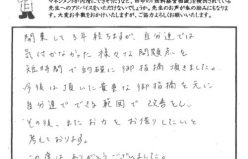 先生へのアドバイスをいただけないでしょうか。
開業して3年経ちますが、自分達では
気付かなかった様々な問題点を
短時間で的確に御指摘頂きました。
今後は頂いた貴重な御指摘を元に
自分達でできる範囲で改善をし、
その後、またお力をお借りしたいと
考えております。
この度はありがとうございました。